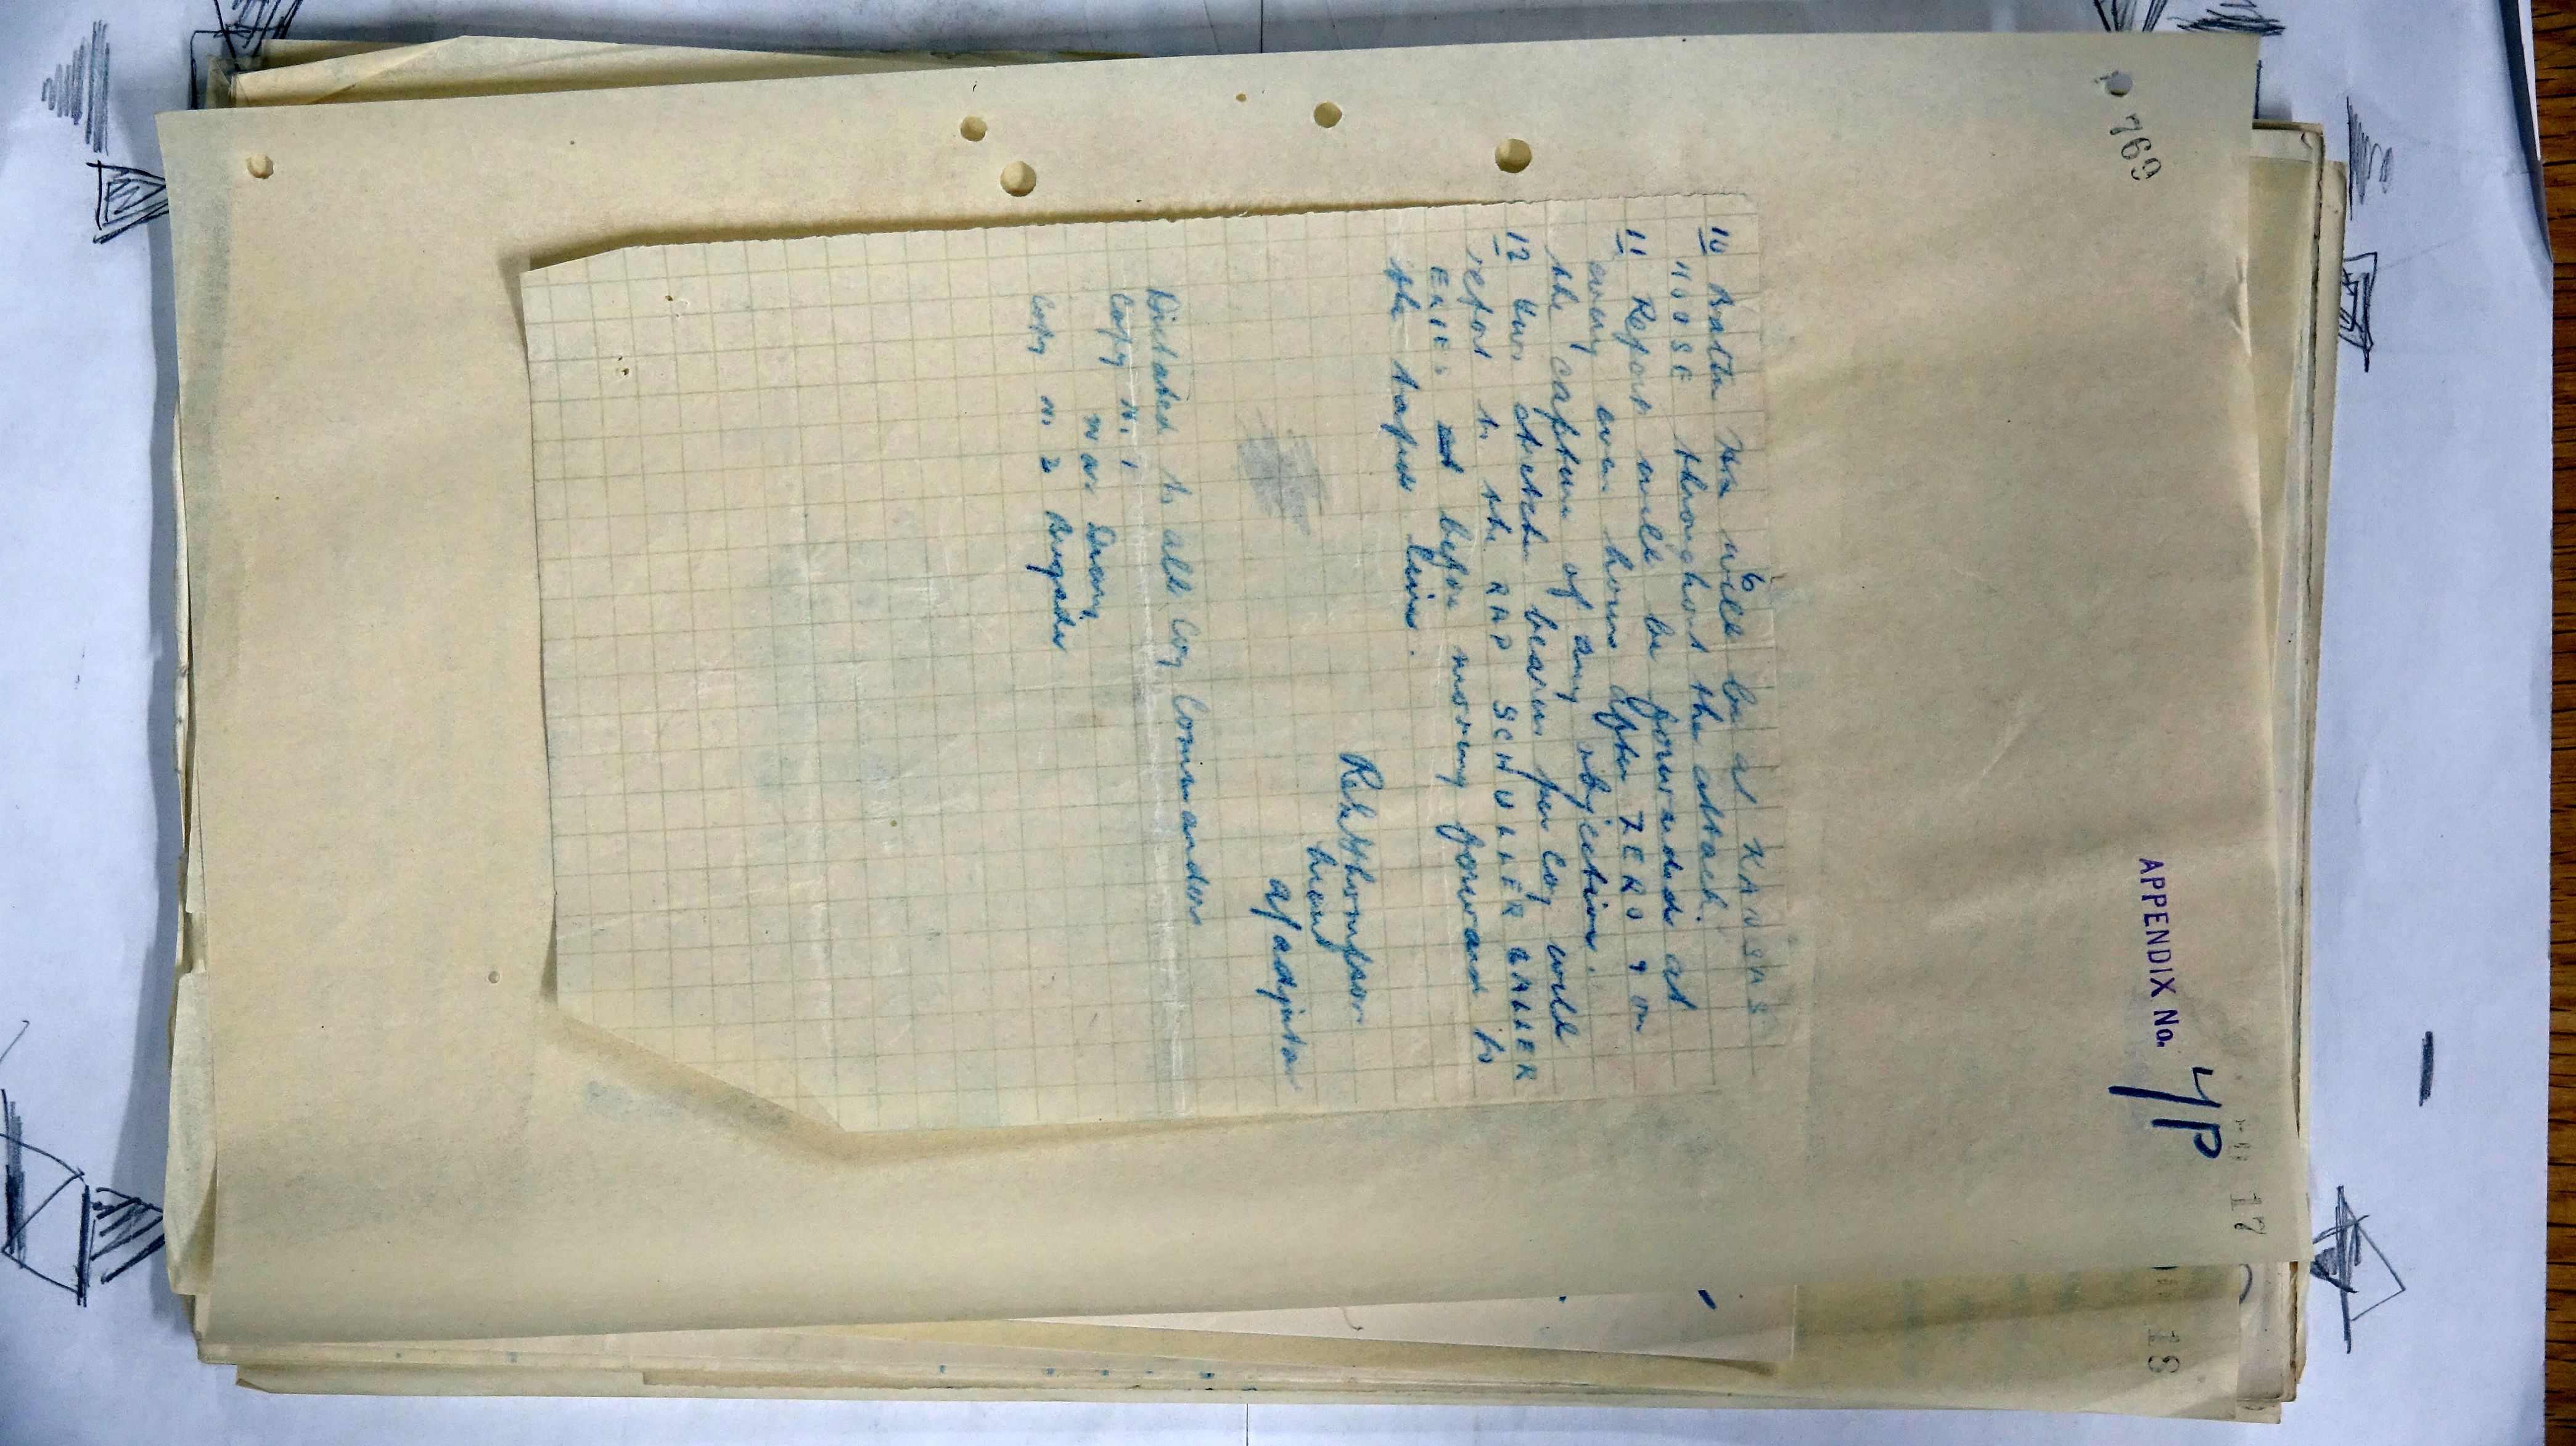 p 769
APPENDIX No. 4P
17
18
6
10 Battn Hrs will be at KANSAS
HOUSE throughout the attack.
11 Report will be forwarded at
every even hours after ZERO & on
the capture of any objective.
12 four stretcher bearers per Coy will
report to the RAP SCHULLER GALLER
ERIES before moving forward to
the taped line.
Rehthompson
Lieut
a/ adjutant
Dictated to all Coy Commanders
Copy No 1
War Diary
Copy No 2 Brigade